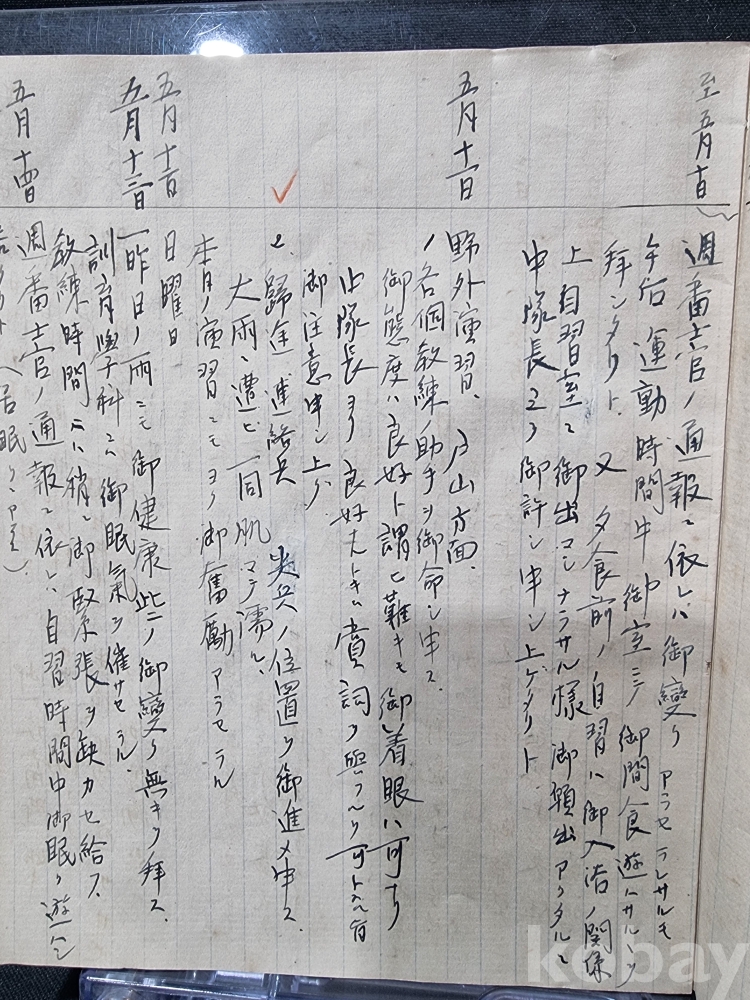 至 五月十日
週番士官ノ通報ニ依レバ御變リアラセラレサルモ
午后運動時間中御室ニテ御間食遊ハサルヽヲ
拝シタリト 又夕食前ノ自習ハ御入浴ノ関係
上自習室ニ御出マシナラサル様御願出アリタルニ
中隊長ヨリ御許シ申シ上ゲタリト
五月十一日
野外演習、戸山方面、
ノ各個教練ノ助手ヲ御命シ申ス
御態度ハ良好ト謂ヒ難キモ御着眼ハ可ナリ
中隊長ヨリ良好ナルトキハ賞詞ヲ與フルヲ可トスル旨
御注意申シ上グ
2、歸途連絡兵 尖兵ノ位置ヲ御進メ申ス
大雨ニ遭ヒ一同肌マデ濡ル、
本日ノ演習ニモヨク御奮励アラセラル
五月十二日
日曜日
五月十三日
一昨日ノ雨ニモ御健康些ノ御變リ無キヲ拝ス、
訓育學科ニハ御眠氣ヲ催サセラル
教練時間ニハ稍ニ御緊張ヲ缺カセ給フ
五月十四日
週番士官ノ通報ニ依レバ自習時間中御眠リ遊
kobay